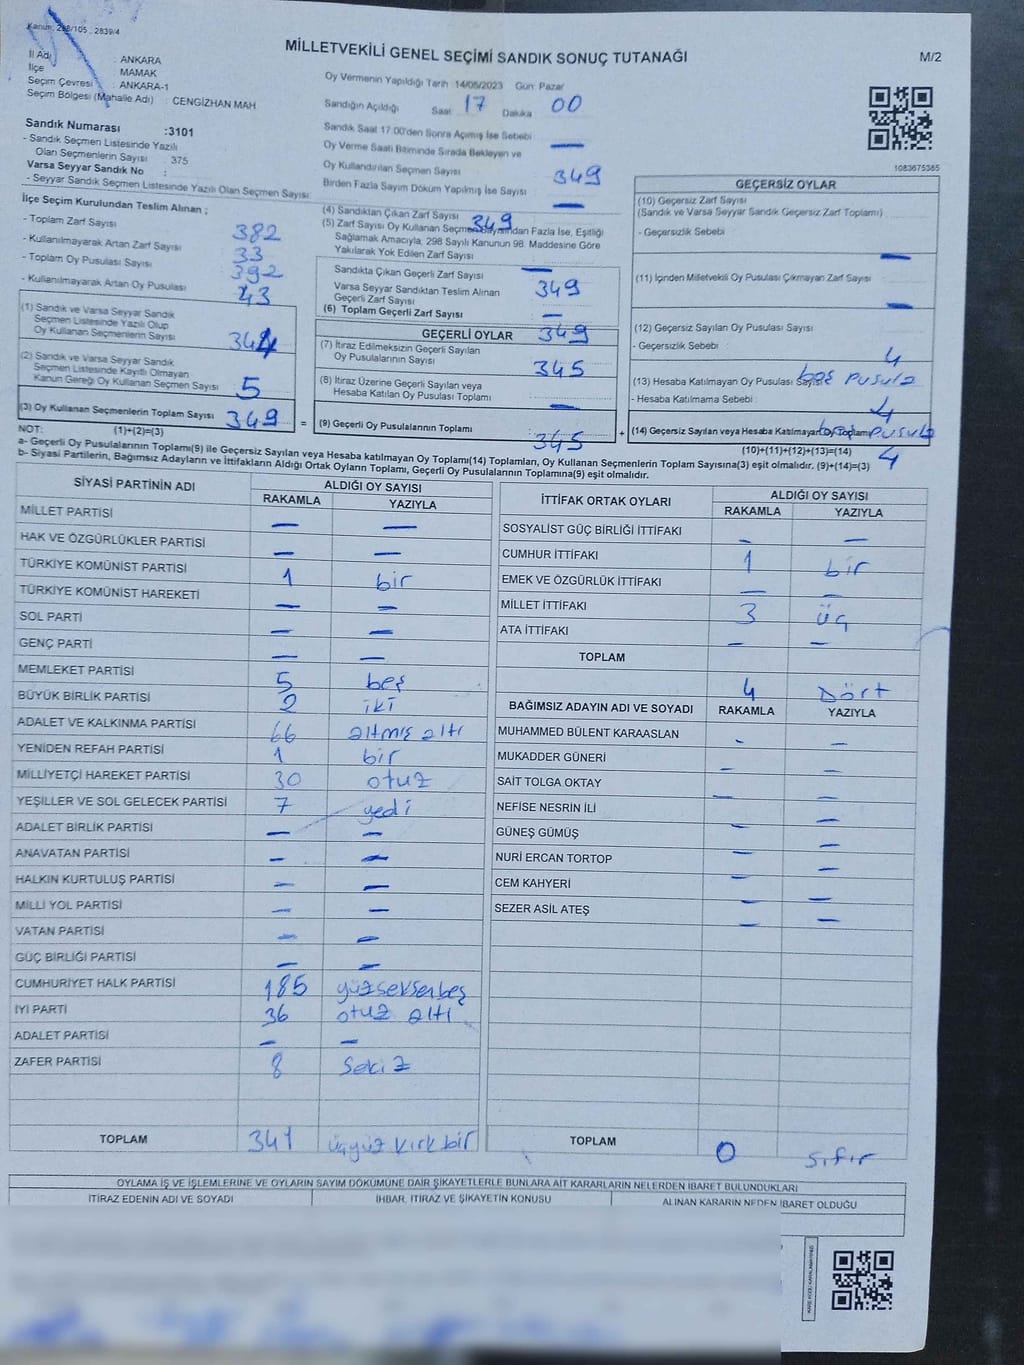 Kanun: 298/105 , 2839/4
MİLLETVEKİLİ GENEL SEÇİMİ SANDIK SONUÇ TUTANAĞI
M/2
İl Adı : ANKARA
İlçe : MAMAK
Seçim Çevresi : ANKARA-1
Seçim Bölgesi (Mahalle Adı) : CENGİZHAN MAH
Sandık Numarası :3101
- Sandık Seçmen Listesinde Yazılı
Olan Seçmenlerin Sayısı : 375
Varsa Seyyar Sandık No :
- Seyyar Sandık Seçmen Listesinde Yazılı Olan Seçmen Sayısı :
Oy Vermenin Yapıldığı Tarih :14/05/2023 Gün: Pazar
Sandığın Açıldığı Saat 17 Dakika 00
Sandık Saat 17:00'den Sonra Açımış İse Sebebi —
Oy Verme Saati Bitiminde Sırada Bekleyen ve
Oy Kullandırılan Seçmen Sayısı 349
Birden Fazla Sayım Döküm Yapılmış İse Sayısı —
1083675385
İlçe Seçim Kurulundan Teslim Alınan ;
- Toplam Zarf Sayısı 382
- Kullanılmayarak Artan Zarf Sayısı 33
- Toplam Oy Pusulası Sayısı 392
- Kullanılmayarak Artan Oy Pusulası 43
(1) Sandık ve Varsa Seyyar Sandık
Seçmen Listesinde Yazılı Olup
Oy Kullanan Seçmenlerin Sayısı 344
(2) Sandık ve Varsa Seyyar Sandık
Seçmen Listesinde Kayıtlı Olmayan
Kanun Gereği Oy Kullanan Seçmen Sayısı 5
(3) Oy Kullanan Seçmenlerin Toplam Sayısı 349
(1)+(2)=(3)
(4) Sandıktan Çıkan Zarf Sayısı 349
(5) Zarf Sayısı Oy Kullanan Seçmen Sayısından Fazla İse, Eşitliği
Sağlamak Amacıyla, 298 Sayılı Kanunun 98. Maddesine Göre
Yakılarak Yok Edilen Zarf Sayısı —
Sandıkta Çıkan Geçerli Zarf Sayısı 349
Varsa Seyyar Sandıktan Teslim Alınan
Geçerli Zarf Sayısı —
(6) Toplam Geçerli Zarf Sayısı 349
GEÇERLİ OYLAR
(7) İtiraz Edilmeksizin Geçerli Sayılan
Oy Pusulalarının Sayısı 345
(8) İtiraz Üzerine Geçerli Sayılan veya
Hesaba Katılan Oy Pusulası Toplamı —
= (9) Geçerli Oy Pusulalarının Toplamı 345
GEÇERSİZ OYLAR
(10) Geçersiz Zarf Sayısı
(Sandık ve Varsa Seyyar Sandık Geçersiz Zarf Toplamı)
- Geçersizlik Sebebi —
(11) İçinden Milletvekili Oy Pusulası Çıkmayan Zarf Sayısı —
(12) Geçersiz Sayılan Oy Pusulası Sayısı 4
- Geçersizlik Sebebi : boş pusula
(13) Hesaba Katılmayan Oy Pusulası Sayısı 4
- Hesaba Katılmama Sebebi : boş pusula
+ (14) Geçersiz Sayılan veya Hesaba Katılmayan Oy Toplamı 4
(10)+(11)+(12)+(13)=(14)
NOT:
a- Geçerli Oy Pusulalarının Toplamı(9) ile Geçersiz Sayılan veya Hesaba katılmayan Oy Toplamı(14) Toplamları, Oy Kullanan Seçmenlerin Toplam Sayısına(3) eşit olmalıdır. (9)+(14)=(3)
b- Siyasi Partilerin, Bağımsız Adayların ve İttifakların Aldığı Ortak Oyların Toplamı, Geçerli Oy Pusulalarının Toplamına(9) eşit olmalıdır.
SİYASİ PARTİNİN ADI ALDIĞI OY SAYISI
RAKAMLA YAZIYLA
MİLLET PARTİSİ — —
HAK VE ÖZGÜRLÜKLER PARTİSİ — —
TÜRKİYE KOMÜNİST PARTİSİ 1 bir
TÜRKİYE KOMÜNİST HAREKETİ — —
SOL PARTİ — —
GENÇ PARTİ — —
MEMLEKET PARTİSİ 5 beş
BÜYÜK BİRLİK PARTİSİ 2 iki
ADALET VE KALKINMA PARTİSİ 66 altmış altı
YENİDEN REFAH PARTİSİ 1 bir
MİLLİYETÇİ HAREKET PARTİSİ 30 otuz
YEŞİLLER VE SOL GELECEK PARTİSİ 7 yedi
ADALET BİRLİK PARTİSİ — —
ANAVATAN PARTİSİ — —
HALKIN KURTULUŞ PARTİSİ — —
MİLLİ YOL PARTİSİ — —
VATAN PARTİSİ — —
GÜÇ BİRLİĞİ PARTİSİ — —
CUMHURİYET HALK PARTİSİ 185 yüzseksenbeş
İYİ PARTİ 36 otuz altı
ADALET PARTİSİ — —
ZAFER PARTİSİ 8 Sekiz
TOPLAM 341 üçyüz kırk bir
İTTİFAK ORTAK OYLARI ALDIĞI OY SAYISI
RAKAMLA YAZIYLA
SOSYALİST GÜÇ BİRLİĞİ İTTİFAKI — —
CUMHUR İTTİFAKI 1 bir
EMEK VE ÖZGÜRLÜK İTTİFAKI — —
MİLLET İTTİFAKI 3 üç
ATA İTTİFAKI — —
TOPLAM 4 Dört
BAĞIMSIZ ADAYIN ADI VE SOYADI RAKAMLA YAZIYLA
MUHAMMED BÜLENT KARAASLAN — —
MUKADDER GÜNERİ — —
SAİT TOLGA OKTAY — —
NEFİSE NESRİN İLİ — —
GÜNEŞ GÜMÜŞ — —
NURİ ERCAN TORTOP — —
CEM KAHYERİ — —
SEZER ASİL ATEŞ — —
TOPLAM 0 Sıfır
OYLAMA İŞ VE İŞLEMLERİNE VE OYLARIN SAYIM DÖKÜMÜNE DAİR ŞİKAYETLERLE BUNLARA AİT KARARLARIN NELERDEN İBARET BULUNDUKLARI
İTİRAZ EDENİN ADI VE SOYADI İHBAR, İTİRAZ VE ŞİKAYETİN KONUSU ALINAN KARARIN NEDEN İBARET OLDUĞU